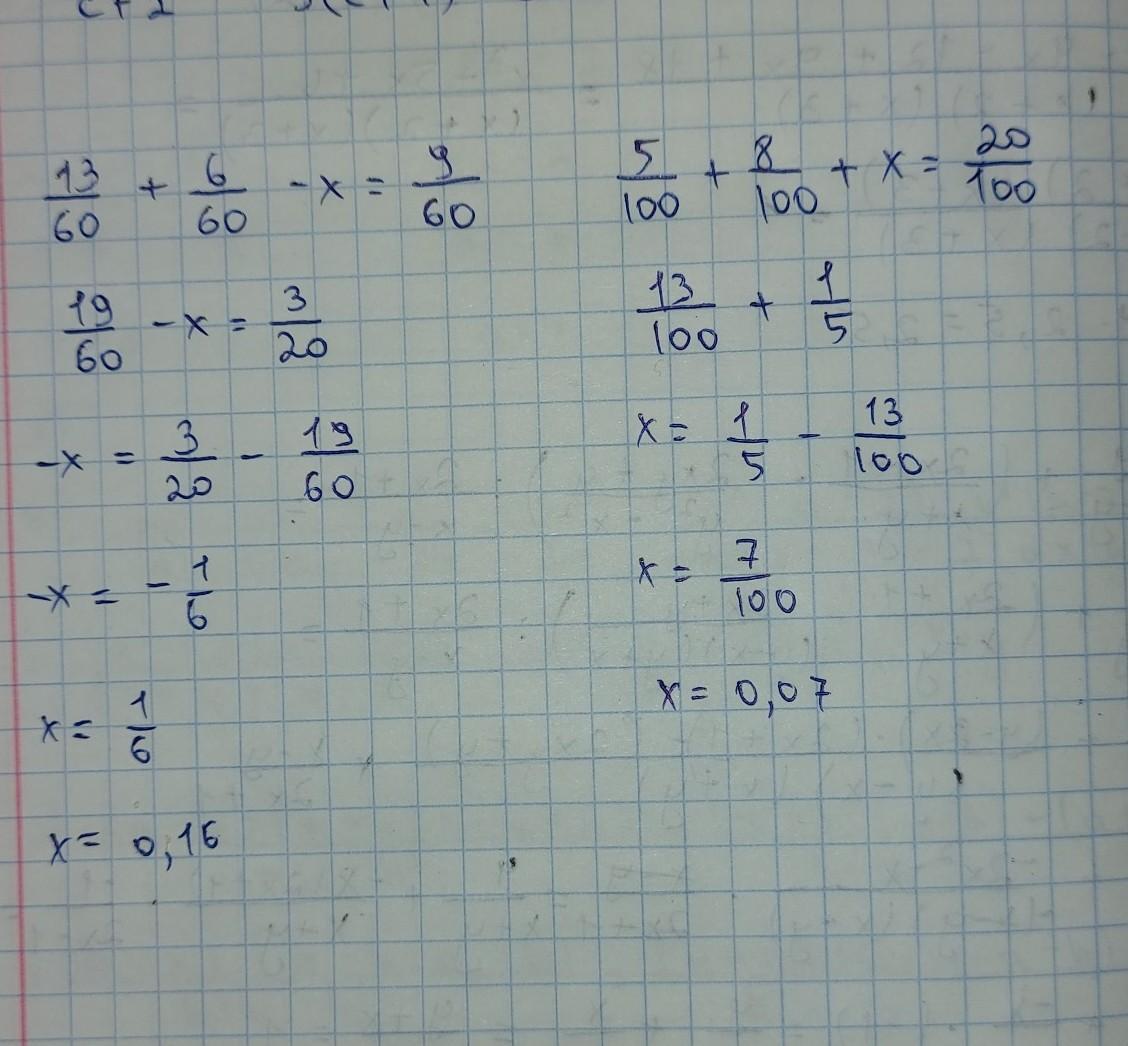 13/60 + 6/60 - x = 9/60
19/60 - x = 3/20
-x = 3/20 - 19/60
-x = - 1/6
x = 1/6
x = 0,16
5/100 + 8/100 + x = 20/100
13/100 + 1/5
x = 1/5 - 13/100
x = 7/100
x = 0,07